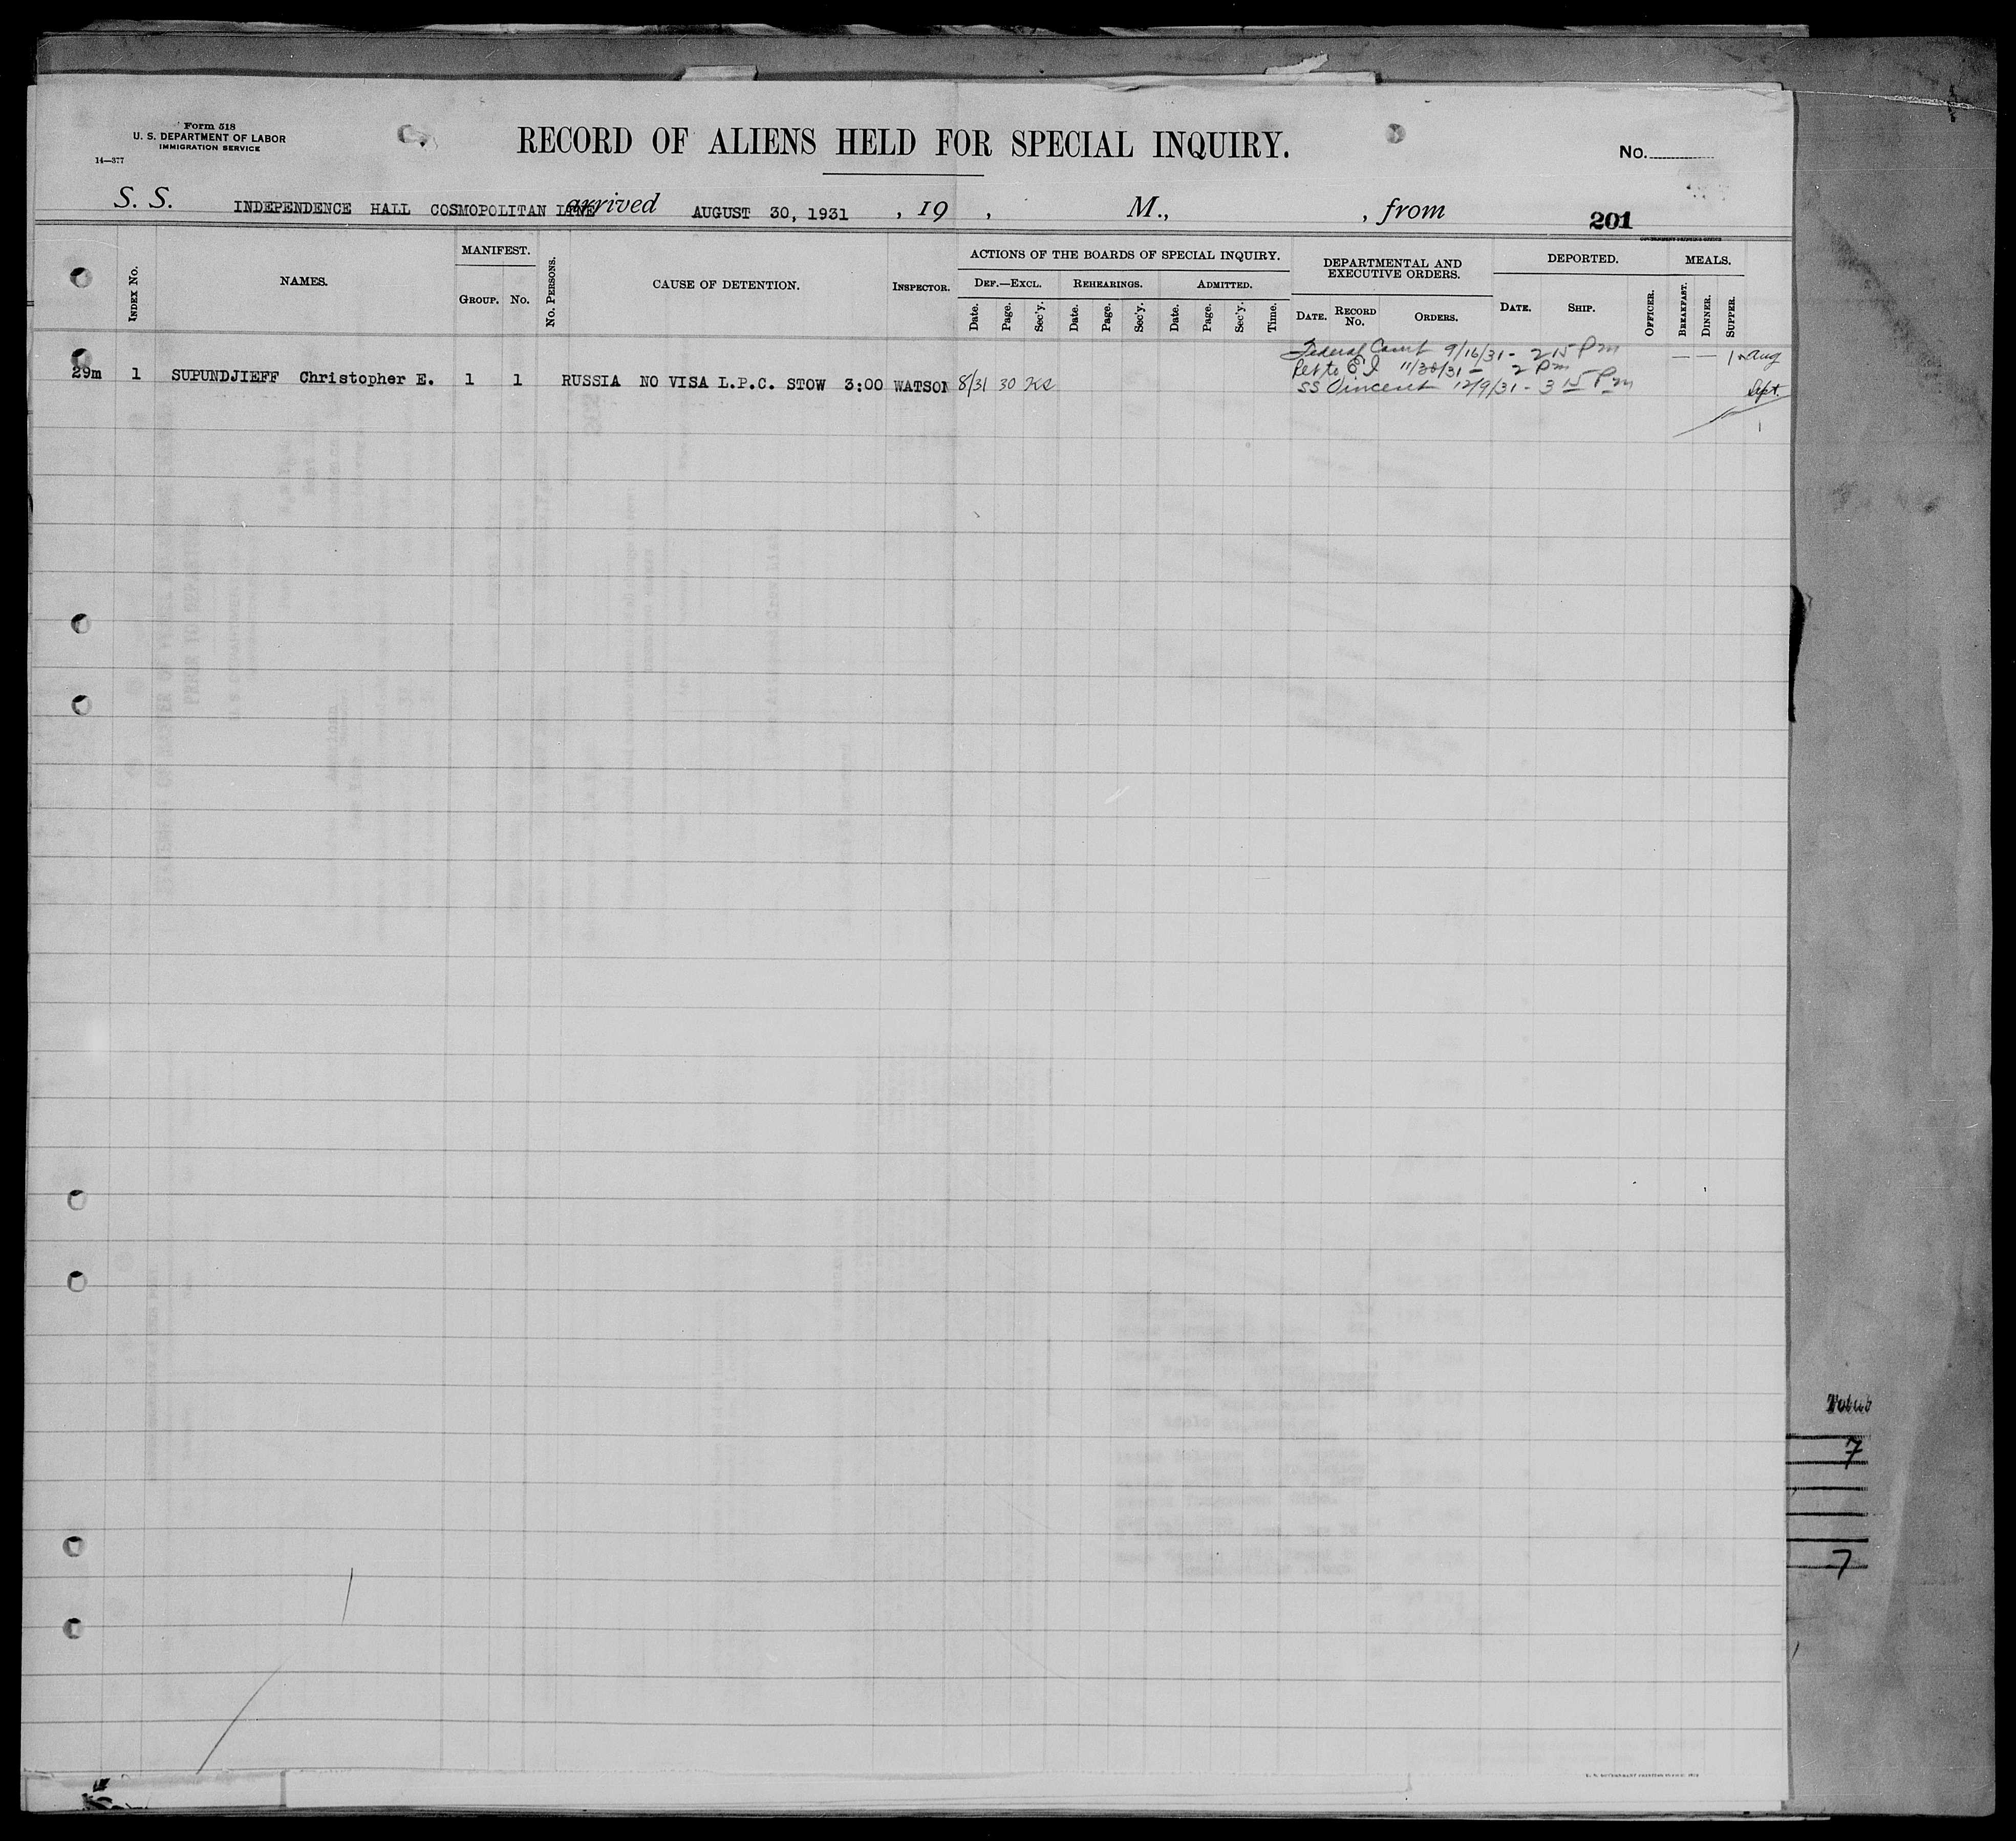 Form 518
U. S. DEPARTMENT OF LABOR
IMMIGRATION SERVICE
14—377
RECORD OF ALIENS HELD FOR SPECIAL INQUIRY.
No.
S. S. INDEPENDENCE HALL COSMOPOLITAN LINE arrived AUGUST 30, 1931 , 19 , M., , from 201
GOVERNMENT PRINTING OFFICE
INDEX NO.
NAMES.
MANIFEST.
GROUP. NO.
NO. PERSONS.
CAUSE OF DETENTION.
INSPECTOR.
ACTIONS OF THE BOARDS OF SPECIAL INQUIRY.
DEF.—EXCL. REHEARINGS. ADMITTED.
Date. Page. Sec'y. Date. Page. Sec'y. Date. Page. Sec'y. Time.
DEPARTMENTAL AND
EXECUTIVE ORDERS.
DATE. RECORD NO. ORDERS.
DEPORTED.
DATE. SHIP. OFFICER.
MEALS.
BREAKFAST. DINNER. SUPPER.
Federal Court 9/16/31 - 2 15 Pm — — 1 Aug
Ret to E I 11/30/31 - 2 Pm
29m 1 SUPUNDJIEFF Christopher E. 1 1 RUSSIA NO VISA L.P.C. STOW 3:00 WATSON 8/31 30 KS
SS Vincent 12/9/31 - 3 15 Pm Sept.
1
Total
7
7